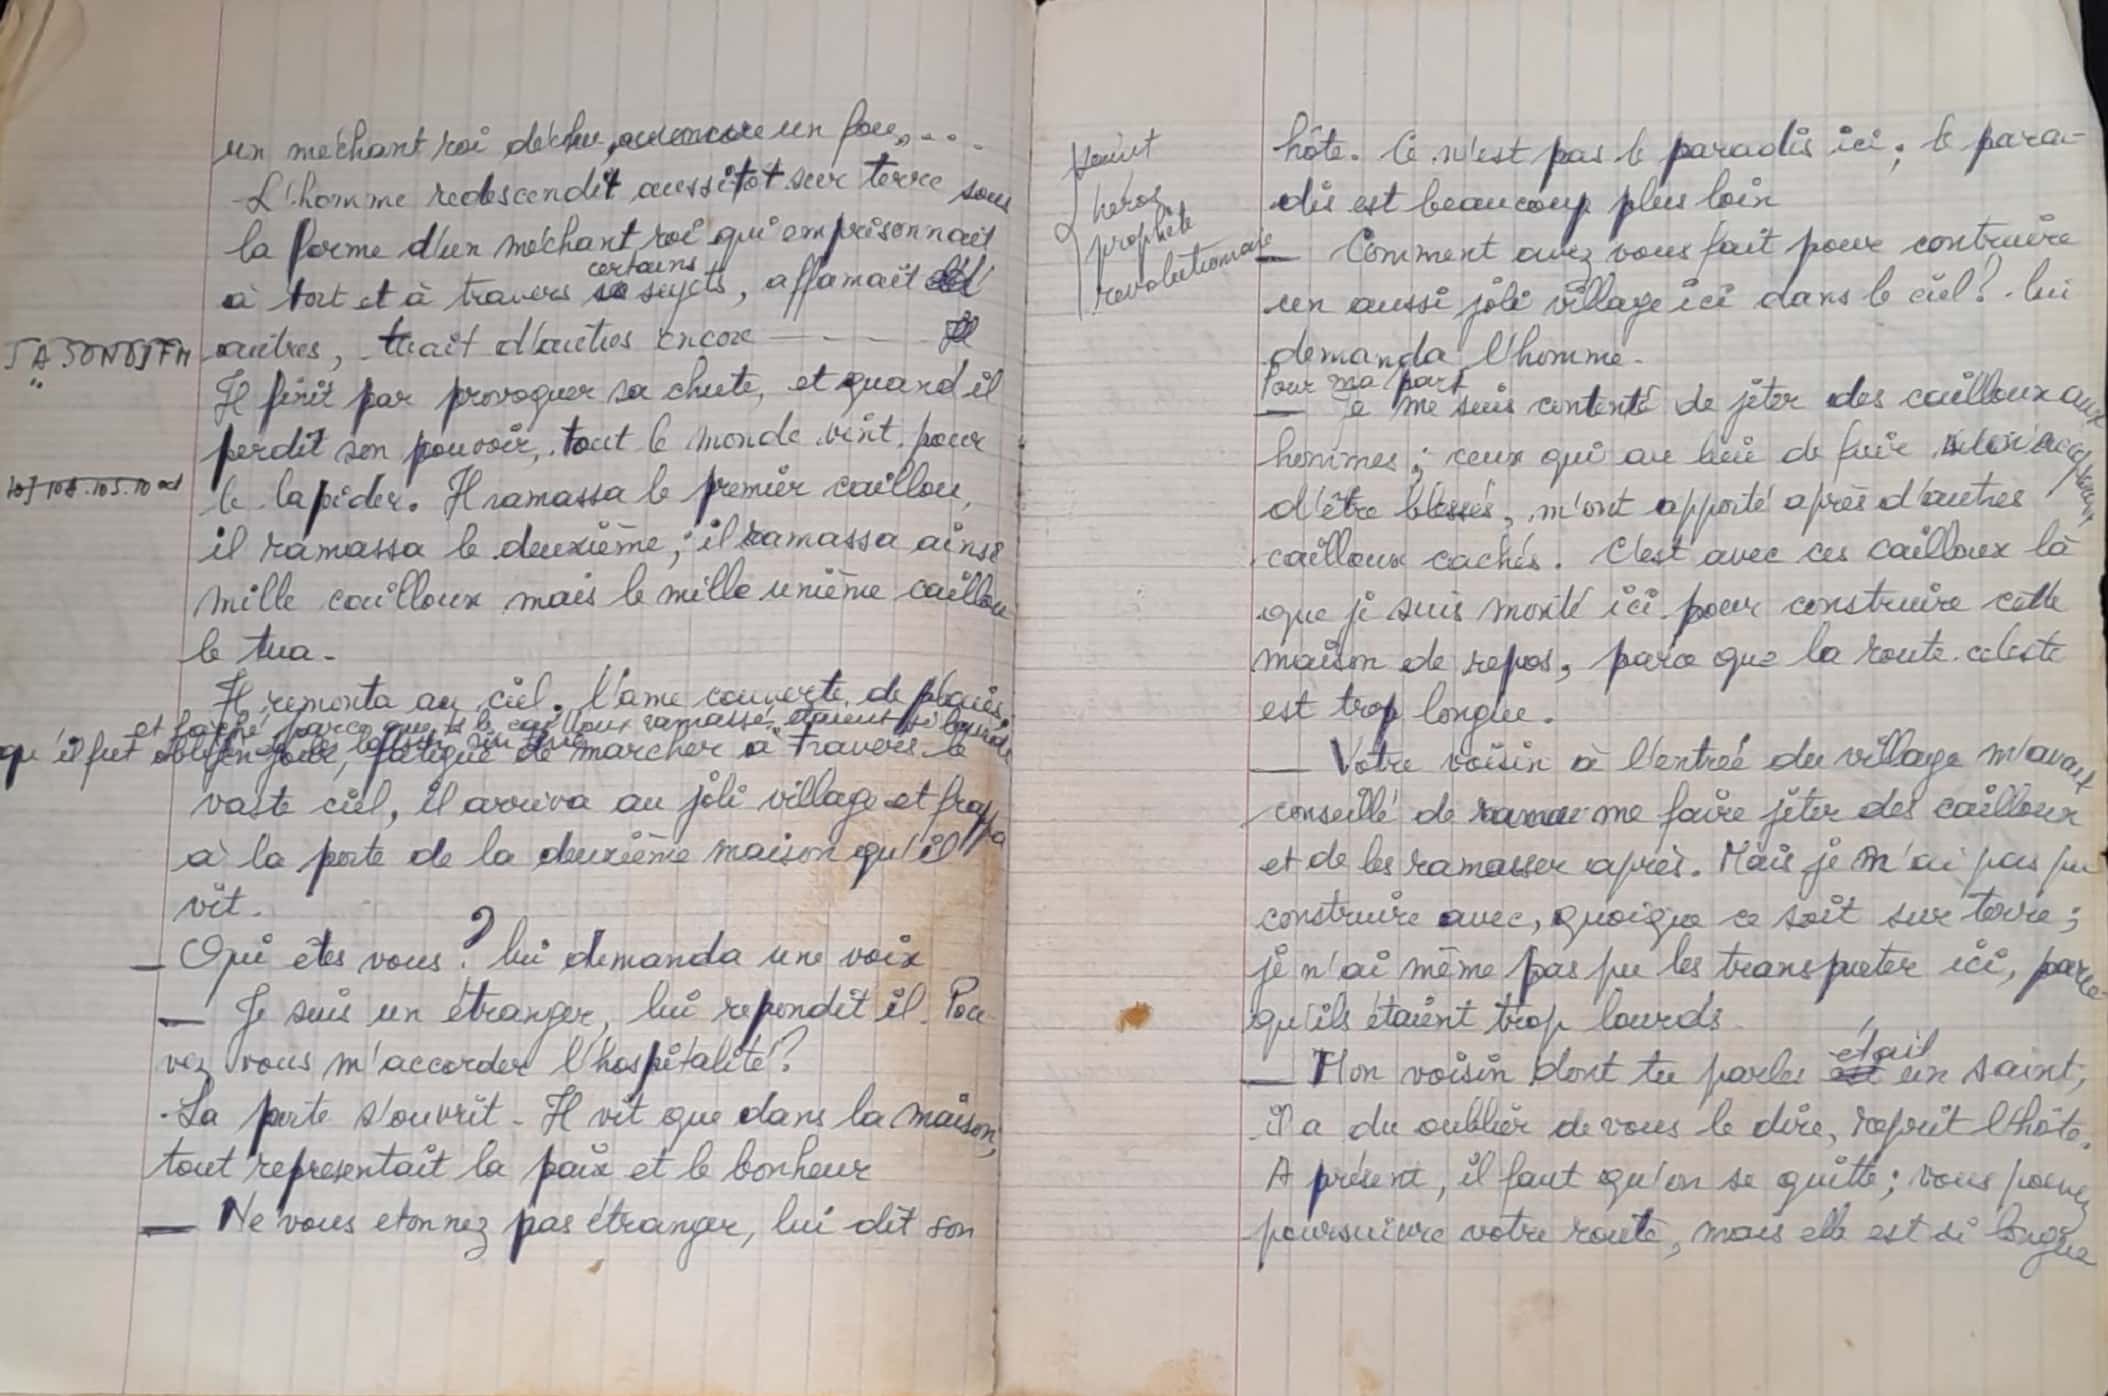 un méchant roi déchu, ou encore un fou, ...
L'homme redescendit aussitôt sur terre sous
la forme d'un méchant roi qui emprisonnait
certains
à tort et à travers sujets, affamait
autres, tuait d'autres encore - - - -
Il finit par provoquer sa chute, et quand il
perdit son pouvoir, tout le monde vint pour
le lapider. Il ramassa le premier caillou,
il ramassa le deuxième; il ramassa ainsi
mille cailloux mais le mille unième caillou
le tua.
Il remonta au ciel, l'ame couverte de plaies,
et fâché parce que les cailloux ramassés étaient si lourds
qu'il fut obligé de les laisser sur terre
fatigué de marcher à travers le
vaste ciel, il arriva au joli village et frappa
à la porte de la deuxième maison qu'il
vit.
— Qui êtes vous? lui demanda une voix
— Je suis un étranger, lui repondit il. Pou-
vez vous m'accorder l'hospitalité?
La porte s'ouvrit - Il vit que dans la maison,
tout representait la paix et le bonheur
— Ne vous etonnez pas étranger, lui dit son
saint
héros
prophète
revolutionnaire
hôte. Ce n'est pas le paradis ici; le para-
dis est beaucoup plus loin
— Comment avez vous fait pour contruire
un aussi joli village ici dans le ciel? lui
demanda l'homme.
Pour ma part
— Je me suis contenté de jéter des cailloux aux
hommes; ceux qui au lieu de fuir
d'être blessés, m'ont apporté après d'autres
cailloux cachés. C'est avec ces cailloux là
que je suis monté ici pour construire cette
maison de repos, parce que la route celeste
est trop longue.
— Votre voisin à l'entrée du village m'avait
conseillé de me faire jéter des cailloux
et de les ramasser après. Mais je n'ai pas pu
construire avec, quoique ce soit sur terre;
je n'ai même pas pu les transporter ici, parce
qu'ils étaient trop lourds
était
— Mon voisin dont tu parles un saint,
il a du oublier de vous le dire, reprit l'hôte.
A présent, il faut qu'on se quitte; vous pouvez
poursuivre votre route, mais elle est si longue